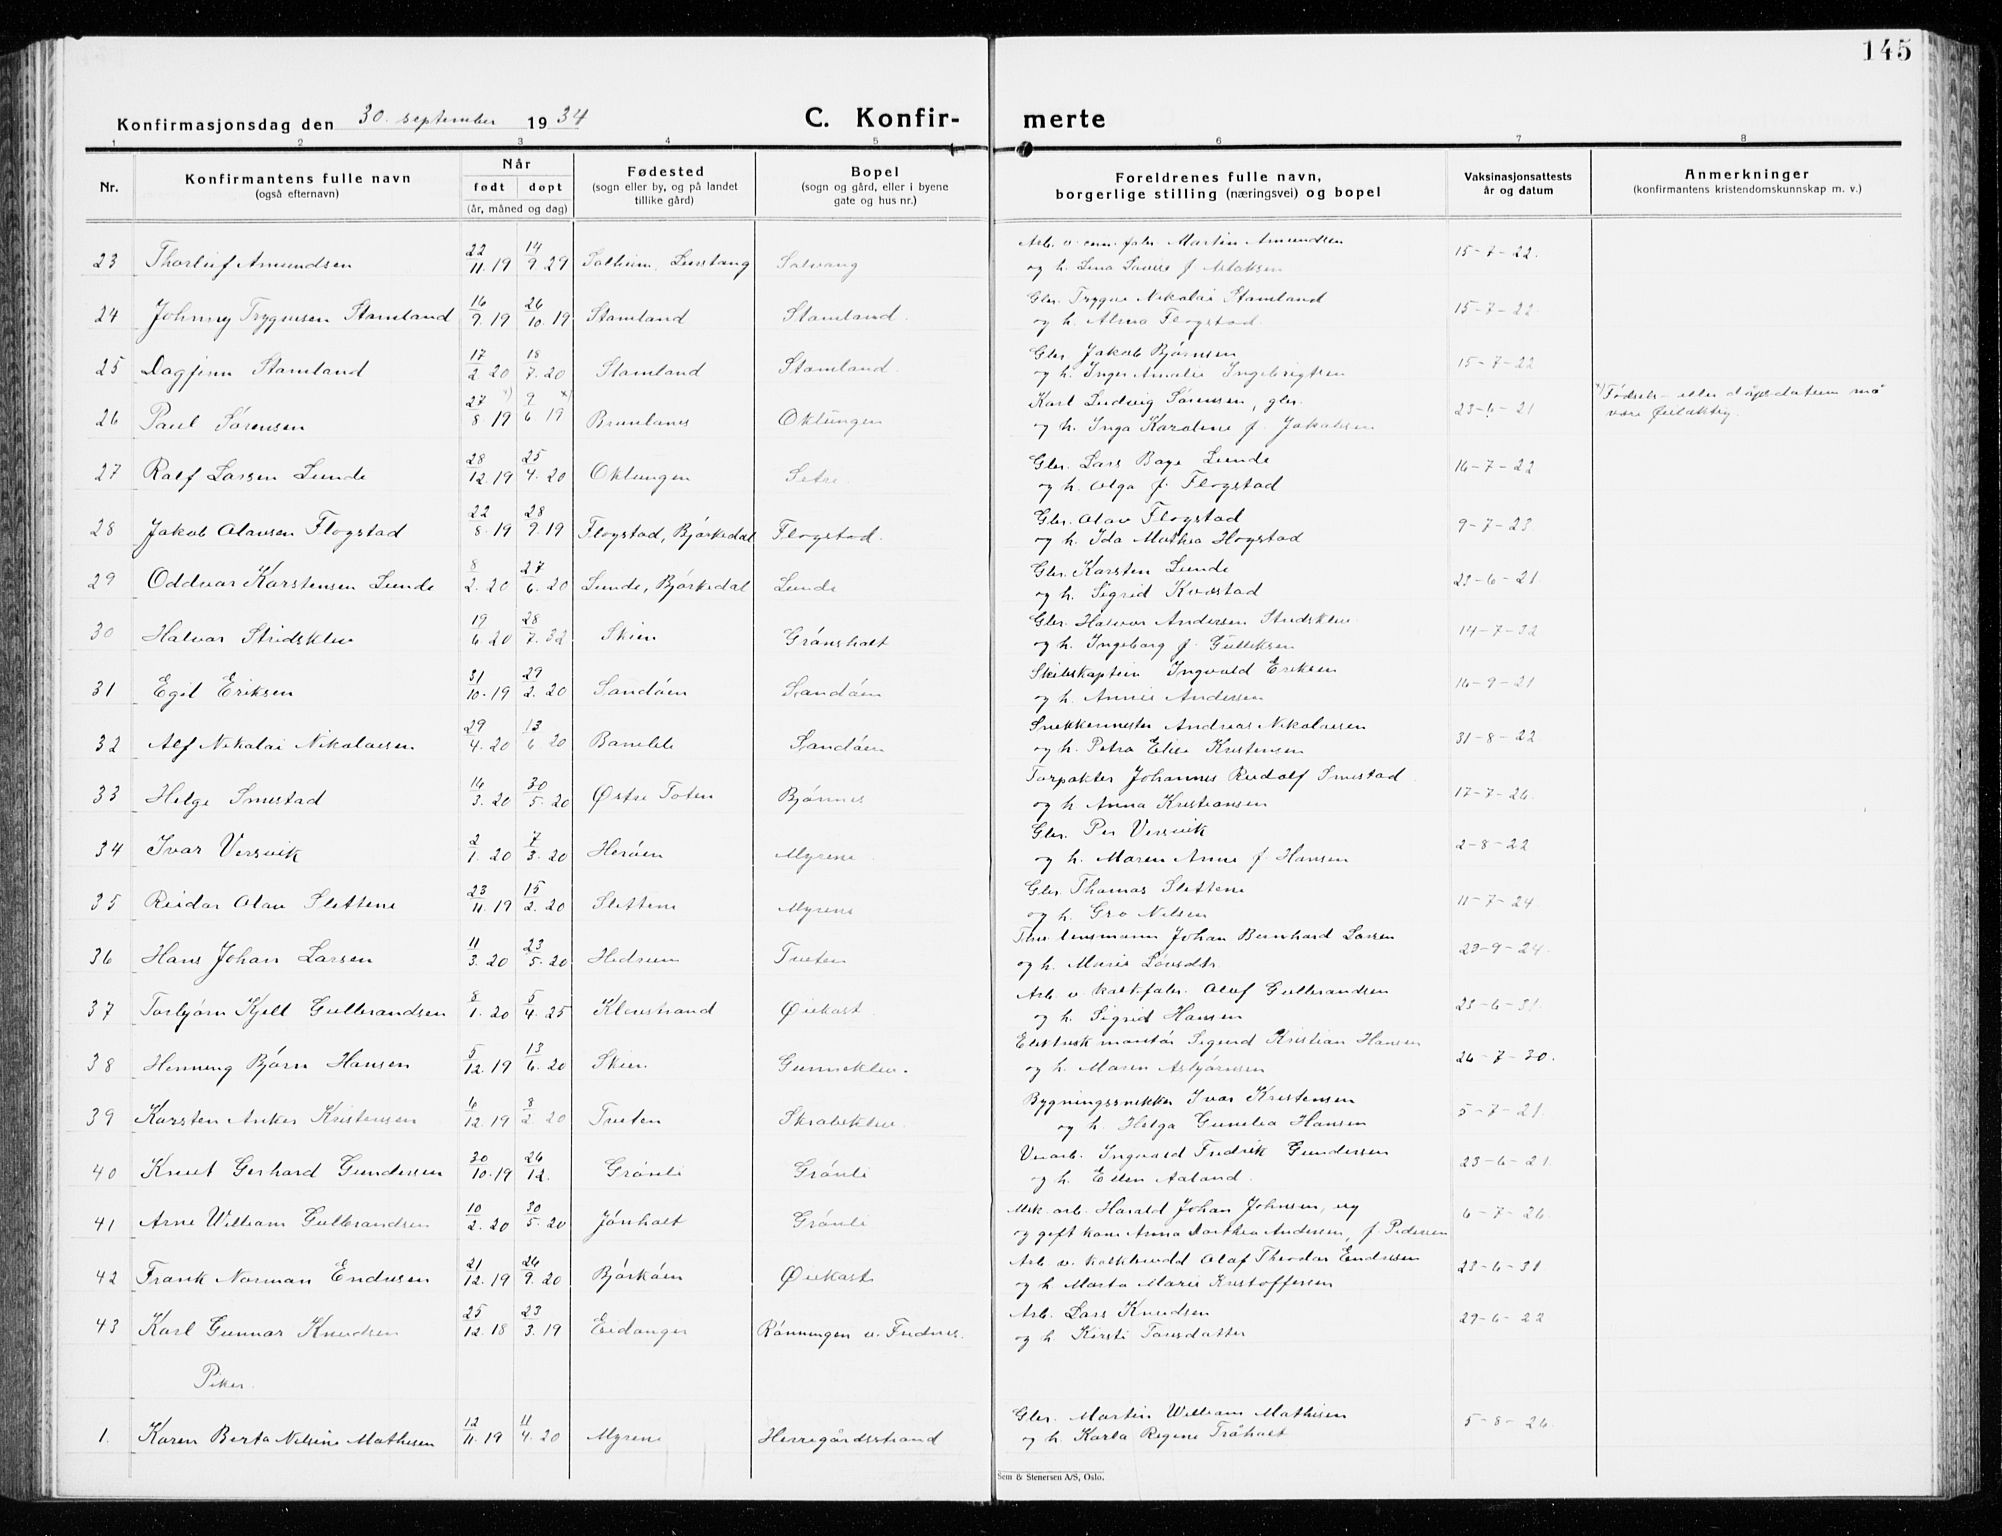 145
Konfirmasjonsdag den 30. september 1934
C. Konfir- merte
1 2 3 4 5 6 7 8
Nr. Konfirmantens fulle navn (også efternavn) Når født døpt (år, måned og dag) Fødested (sogn eller by, og på landet tillike gård) Bopel (sogn og gård, eller i byene gate og hus nr.) Foreldrenes fulle navn, borgerlige stilling (næringsvei) og bopel Vaksinasjonsattests år og datum Anmerkninger (konfirmantens kristendomskunnskap m. v.)
23 Thorleif Amundsen 22/11. 19 14/9. 29 Solvang Arb. v. Martin Amundsen 15-7-22.
og h. Lina f.
24 Johnny Trygvesen Stamland 16/9. 19 26/10. 19 Stamland Stamland. Gbr. Trygve Nikolai Stamland 15-7-22
og h. Alma Flogstad.
25 Dagfinn Stamland 17/2. 20 18/7. 20 Stamland Stamland. Gbr. Jakob Bjørnsen 15-7-22
og h. Inger Amalie Ingebrigtsen
26 Paul Sørensen 27/8 19 x) 9/6 19 x) Brunlanes Oklungen Karl Ludvig Sørensen, gbr. 23-6-21 x) Fødsels- eller dåpsdatum må
og h. Inga Karoline f. Jakobsen være feilaktig.
27 Ralf Larsen Lunde 28/12. 19 25/4. 20 Oklungen Setre. Gbr. Lars Boye Lunde 16-7-22
og h. Olga f. Flogstad
28 Jakob Olavsen Flogstad 22/8. 19 28/9. 19 Flogstad, Bjørkedal Flogstad. Gbr. Olav Flogstad 9-7-23
og h. Ida Mathea Hogstad
29 Oddvar Karstensen Lunde 8/2. 20 27/6. 20 Lunde, Bjørkedal Lunde Gbr. Karsten Lunde 23-6-21.
og h. Sigrid Kvæstad
30 Halvor Stridsklev 19/6. 20 28/7. 32 Skien Grønsholt Gbr. Halvor Andersen Stridsklev 14-7-32
og h. Ingeborg f. Gulliksen
31 Egil Eriksen 31/10. 19 29/2. 20 Sandøen Sandøen Skibskaptein Ingvald Eriksen 16-9-21
og h. Annie Andersen
32 Alf Nikolai Nikolaisen 29/4. 20 13/6. 20 Bamble Sandøen Snekkermester Andreas Nikolaisen 31-8-22.
og h. Petra Elise Kristensen
33 Helge Smestad 16/3. 20 30/5. 20 Østre Toten Bjørnnes Forpakter Johannes Rudolf Smestad 17-7-26.
og h. Anna Kristiansen
34 Ivar Versvik 2/1. 20 7/3. 20 Herøen Myrene. Gbr. Per Versvik 2-8-22
og h. Maren Anne f. Hansen
35 Reidar Olav Slettene 23/11. 19 15/2. 20 Slettene Myrene Gbr. Thomas Slettene 11-7-24.
og h. Gro Nilsen
36 Hans Johan Larsen 11/3. 20 23/5. 20 Hedrum Tveten Fhv. lensmann Johan Bernhard Larsen 23-9-24.
og h. Marie
37 Torbjørn Kjell Gulbrandsen 8/1. 20 5/4. 25 Klevstrand Øiekast. Arb. v. kalkfabr. Olaf Gulbrandsen 23-6-31
og h. Sigrid Hansen
38 Henning Bjørn Hansen 5/12. 19 13/6. 20 Skien Gunneklev. Elektrisk montør Sigurd Kristian Hansen 26-7-30.
og h. Maren Asbjørnsen
39 Karsten Anker Kristensen 6/12. 19 8/2. 20 Tveten Skrabeklev. Bygningssnekker Ivar Kristensen 5-7-21.
og h. Helga Gunelia Hansen
40 Knut Gerhard Gundersen 30/10. 19 26/12. Grønli Grønli Verarb. Ingvald Fredrik Gundersen 23-6-21
og h. Ellen Aaland.
41 Arne William Gulbrandsen 10/2. 20 30/5. 20 Jønholt Grønli Mek. arb. Harald Johan Johnsen, ug 6-7-26.
og gift kone Anna Dorthea Andersen, f. Pedersen
42 Frank Norman Endresen 21/12. 19 26/9. 20 Bjørkøen Øiekast Arb. v. kalkbrudd Olaf Theodor Endresen 23-6-31
og h. Marta Marie Kristoffersen
43 Karl Gunnar Knudsen 25/12. 18 23/3. 19 Eidanger Rønningen v. Fridnes. Arb. Lars Knudsen 29-6-22
og h. Kirsti Tovsdatter
Piker.
1. Karen Berta Nilsine Mathisen 12/11. 19 11/4. 20 Myrene Herregårdsstrand Gbr. Martin William Mathisen 5-8-26.
og h. Karla Regine Tråholt
Sem & Stenersen A/S, Oslo.